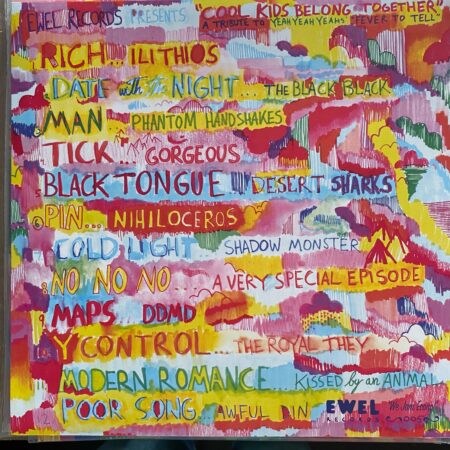 EWEL RECORDS PRESENTS "COOL KIDS BELONG TOGETHER"
A TRIBUTE TO YEAH YEAH YEAHS' "FEVER TO TELL"
RICH... ILITHIOS
DATE with the NIGHT... THE BLACK BLACK
MAN PHANTOM HANDSHAKES
TICK... GORGEOUS
BLACK TONGUE DESERT SHARKS
6 PIN... NIHILOCEROS
COLD LIGHT SHADOW MONSTER
NO NO NO... A VERY SPECIAL EPISODE
MAPS... DDMD
Y CONTROL... THE ROYAL THEY
MODERN ROMANCE... KISSED by an ANIMAL
POOR SONG AWFUL DIN EWEL
RECORDS